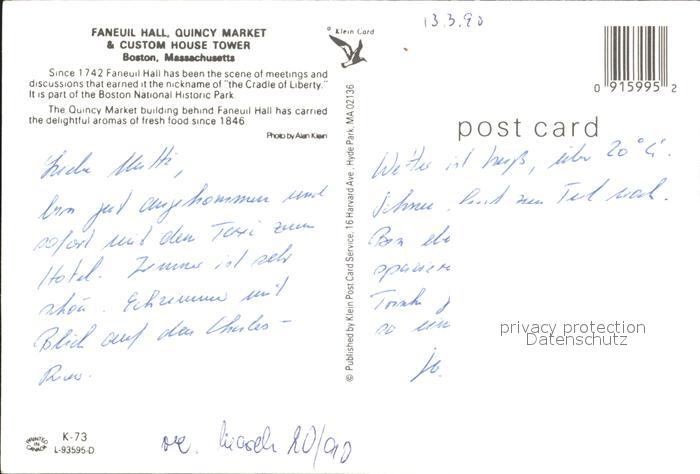 FANEUIL HALL, QUINCY MARKET
& CUSTOM HOUSE TOWER
Boston, Massachusetts
Since 1742 Faneuil Hall has been the scene of meetings and
discussions that earned it the nickname of "the Cradle of Liberty."
It is part of the Boston National Historic Park.
The Quincy Market building behind Faneuil Hall has carried
the delightful aromas of fresh food since 1846.
Photo by Alan Klein
Liebe Mutti,
bin gut angekommen und
sofort mit dem Taxi zum
Hotel. Zimmer ist sehr
schön. Eckzimmer mit
Blick auf den Charles-
River.
K-73
L-93595-D
PRINTED IN CANADA
Klein Card
© Published by Klein Post Card Service, 16 Harvard Ave., Hyde Park, MA 02136
13.3.90
0 915995 2
post card
Wetter ist heiß, über 20°C.
Schnee liegt zum Teil noch.
Bin
so
privacy protection
Datenschutz
March 20/90